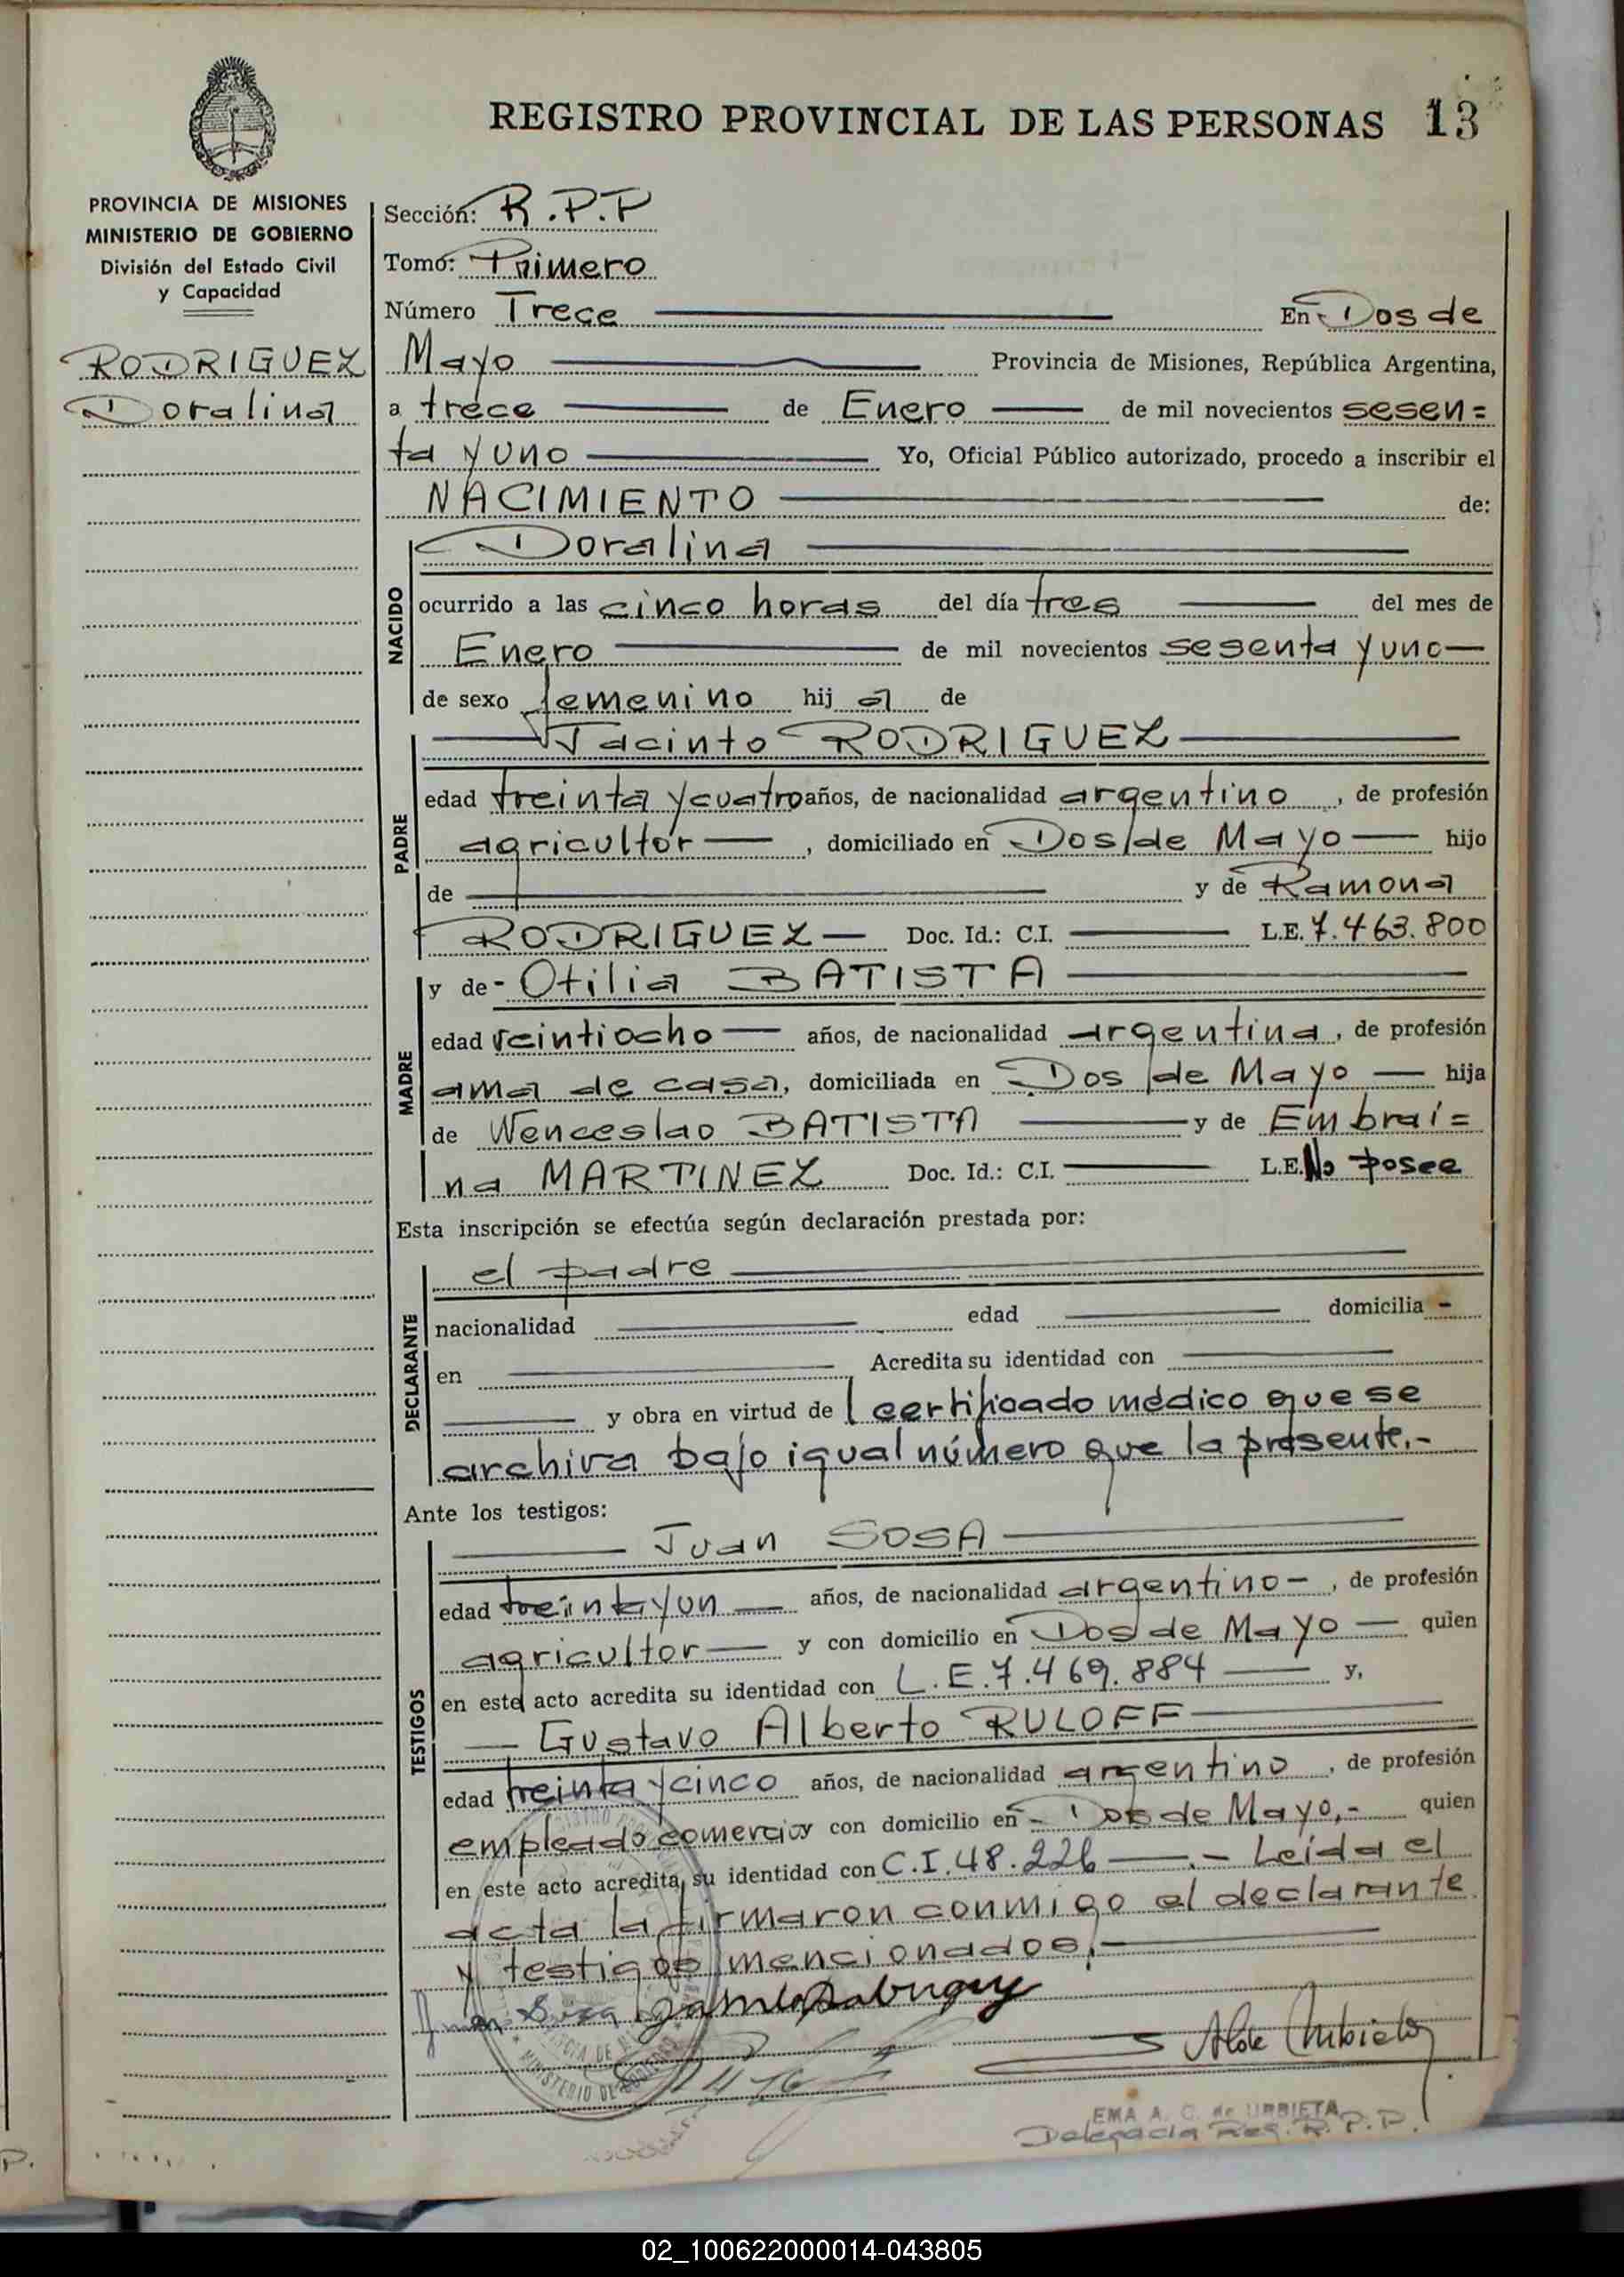 REGISTRO PROVINCIAL DE LAS PERSONAS 13
PROVINCIA DE MISIONES
MINISTERIO DE GOBIERNO
División del Estado Civil
y Capacidad
RODRIGUEZ
Doralina
Sección: R.P.P
Tomo: Primero
Número Trece En Dos de
Mayo Provincia de Misiones, República Argentina,
a trece de Enero de mil novecientos sesen=
ta y uno Yo, Oficial Público autorizado, procedo a inscribir el
NACIMIENTO de:
NACIDO
Doralina
ocurrido a las cinco horas del día tres del mes de
Enero de mil novecientos sesenta y uno
de sexo femenino hij a de
PADRE
Jacinto RODRIGUEZ
edad treinta y cuatro años, de nacionalidad argentino, de profesión
agricultor, domiciliado en Dos de Mayo hijo
de y de Ramona
RODRIGUEZ Doc. Id.: C.I. L.E. 7.463.800
MADRE
y de Otilia BATISTA
edad veintiocho años, de nacionalidad argentina, de profesión
ama de casa, domiciliada en Dos de Mayo hija
de Wenceslao BATISTA y de Embrai=
na MARTINEZ Doc. Id.: C.I. L.E. No posee
Esta inscripción se efectúa según declaración prestada por:
DECLARANTE
el padre
nacionalidad edad domicilia -
en Acredita su identidad con
y obra en virtud de l certificado médico que se
archiva bajo igual número que la presente.-
Ante los testigos:
TESTIGOS
Juan SOSA
edad treinta y un años, de nacionalidad argentino-, de profesión
agricultor y con domicilio en Dos de Mayo quien
en este acto acredita su identidad con L.E. 7.469.884 y,
Gustavo Alberto RULOFF
edad treinta y cinco años, de nacionalidad argentino, de profesión
empleado comercio y con domicilio en Dos de Mayo,- quien
en este acto acredita su identidad con C.I. 48.226 .- Leída el
acta la firmaron conmigo el declarante
y testigos mencionados.-
MINISTERIO DE GOBIERNO
EMA A. C. de URBIETA
Delegacia Reg. R.P.P.
02_100622000014-043805